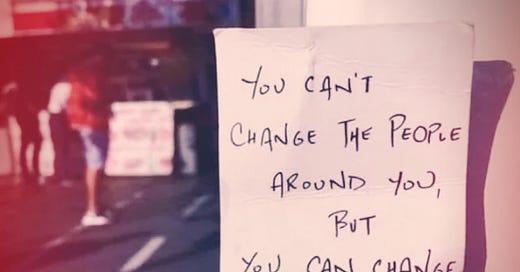 YOU CAN'T
CHANGE THE PEOPLE
AROUND YOU,
BUT
YOU CAN CHANGE